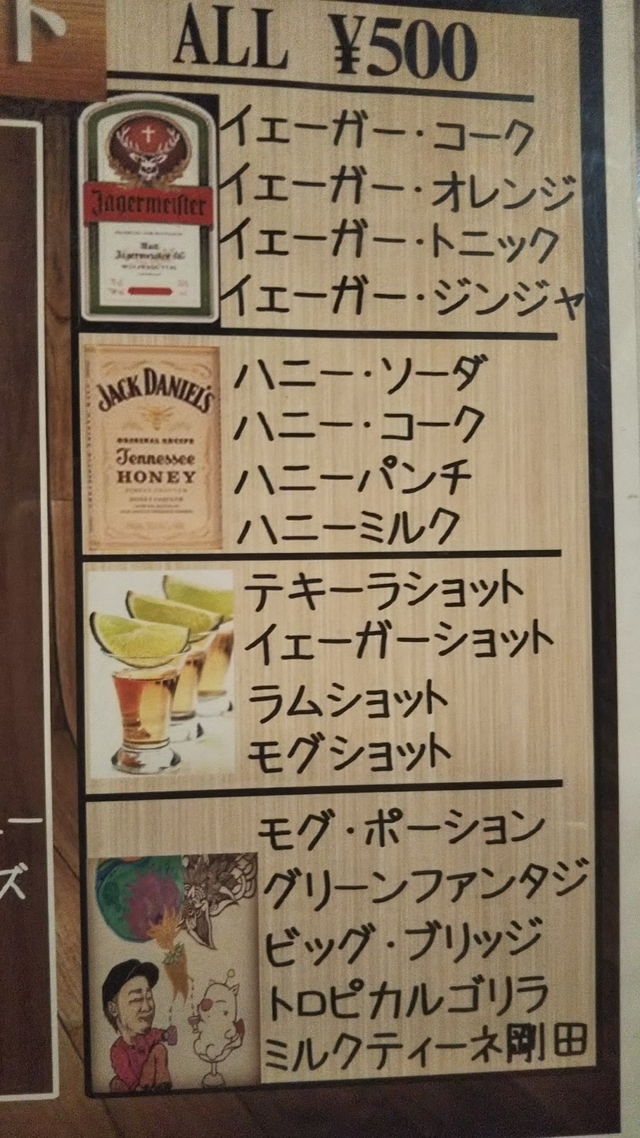 ト
ALL ¥500
Jägermeister
イェーガー・コーク
イェーガー・オレンジ
イェーガー・トニック
イェーガー・ジンジャ
JACK DANIEL'S
ORIGINAL RECIPE
Tennessee
HONEY
ハニー・ソーダ
ハニー・コーク
ハニーパンチ
ハニーミルク
テキーラショット
イェーガーショット
ラムショット
モグショット
モグ・ポーション
グリーンファンタジ
ビッグ・ブリッジ
トロピカルゴリラ
ミルクティーネ剛田
ー
ズ